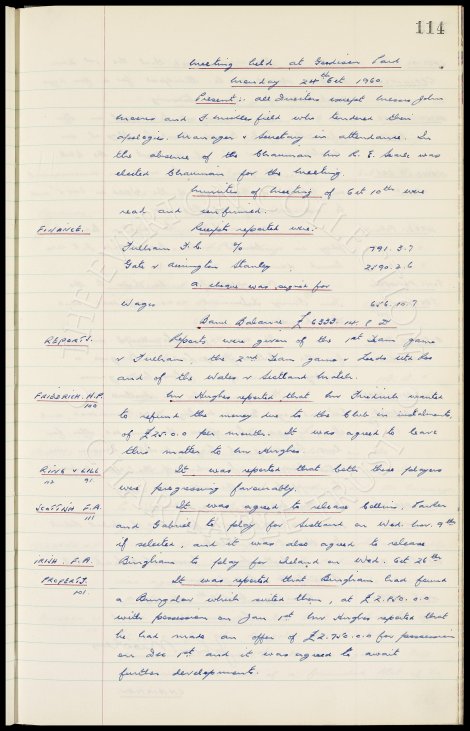 114
Meeting held at Goodison Park
Monday 24th Oct 1960.
Present:- All Directors except Messrs John
Moores and F. Micklesfield who tendered their
apologies. Manager & Secretary in attendance. In
the absence of the Chairman Mr R. E. Searle was
elected Chairman for the meeting.
Minutes of Meeting of Oct 10th were
read and confirmed.
FINANCE. Receipts reported were:
Fulham F.C. 1791. 3. 7
Gate v Accrington Stanley 2190. 2. 6
A cheque was signed for
Wages 656. 10. 7
Bank Balance £6333. 14. 8 D
REPORTS. Reports were given of the 1st Team game
v Fulham, the 2nd Team game v Leeds Utd Res
and of the Wales v Scotland match.
FRIEDRICH. H.P. Mr Hughes reported that Mr Friedrich wanted
100
to refund the money due to the Club in instalments
of £25.0.0 per month. It was agreed to leave
this matter to Mr Hughes.
RING & GILL It was reported that both these players
112 91.
were progressing favourably.
SCOTTISH F.A. It was agreed to release Collins, Parker
111
and Gabriel to play for Scotland on Wed. Nov. 9th
if selected, and it was also agreed to release
IRISH. F.A. Bingham to play for Ireland on Wed. Oct 26th
PROPERTY. It was reported that Bingham had found
101.
a Bungalow which suited them, at £2.950.0.0
with possession on Jan 1st Mr Hughes reported that
he had made an offer of £2.750.0.0 for possession
on Dec 1st and it was agreed to await
further developments.
THE EVERTON COLLECTION